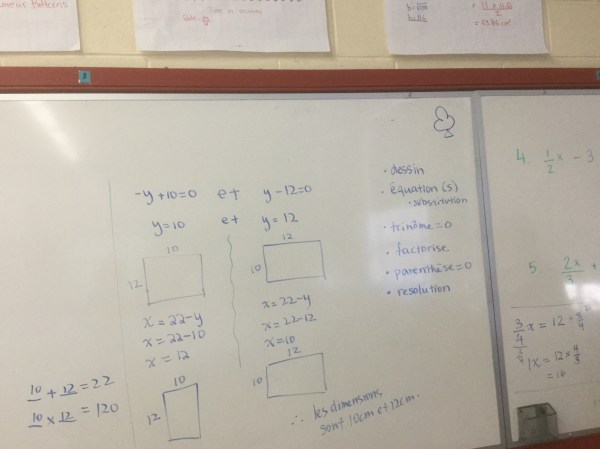 -y+10=0 et y-12=0
y=10 et y=12
10
12
12
10
x=22-y
x=22-10
x=12
x=22-y
x=22-12
x=10
10
12
12
10
10 + 12 = 22
10 x 12 = 120
∴ les dimensions
sont 10cm et 12cm.
• dessin
• équation(s)
• substitution
• trinôme=0
• factorise
• parenthèse=0
• resolution
4. 1/2 x - 3
5. 2x/3 +